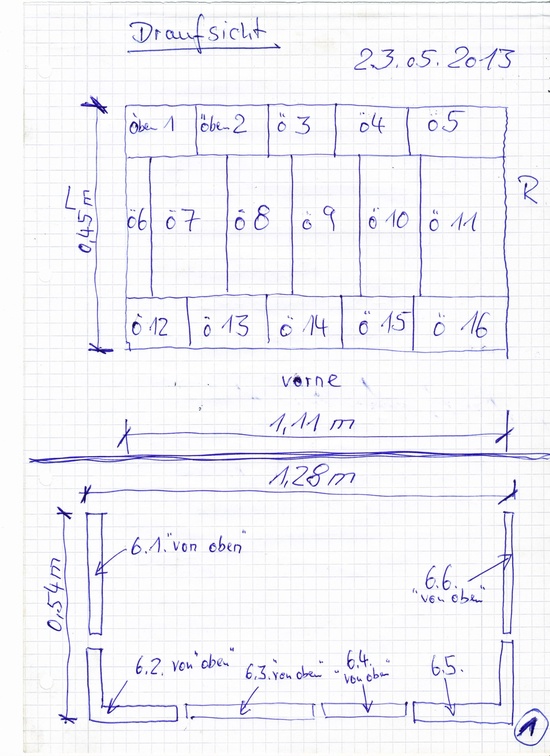 Draufsicht
23.05.2013
öben 1 öben 2 ö 3 ö4 ö 5
L R
0,45 m
ö6 ö 7 ö 8 ö 9 ö 10 ö 11
ö 12 ö 13 ö 14 ö 15 ö 16
vorne
1,11 m
1,28 m
0,54 m
6.1. "von oben"
6.6.
"von oben"
6.2. von "oben"
6.3. "von oben"
6.4.
"von oben"
6.5.
1